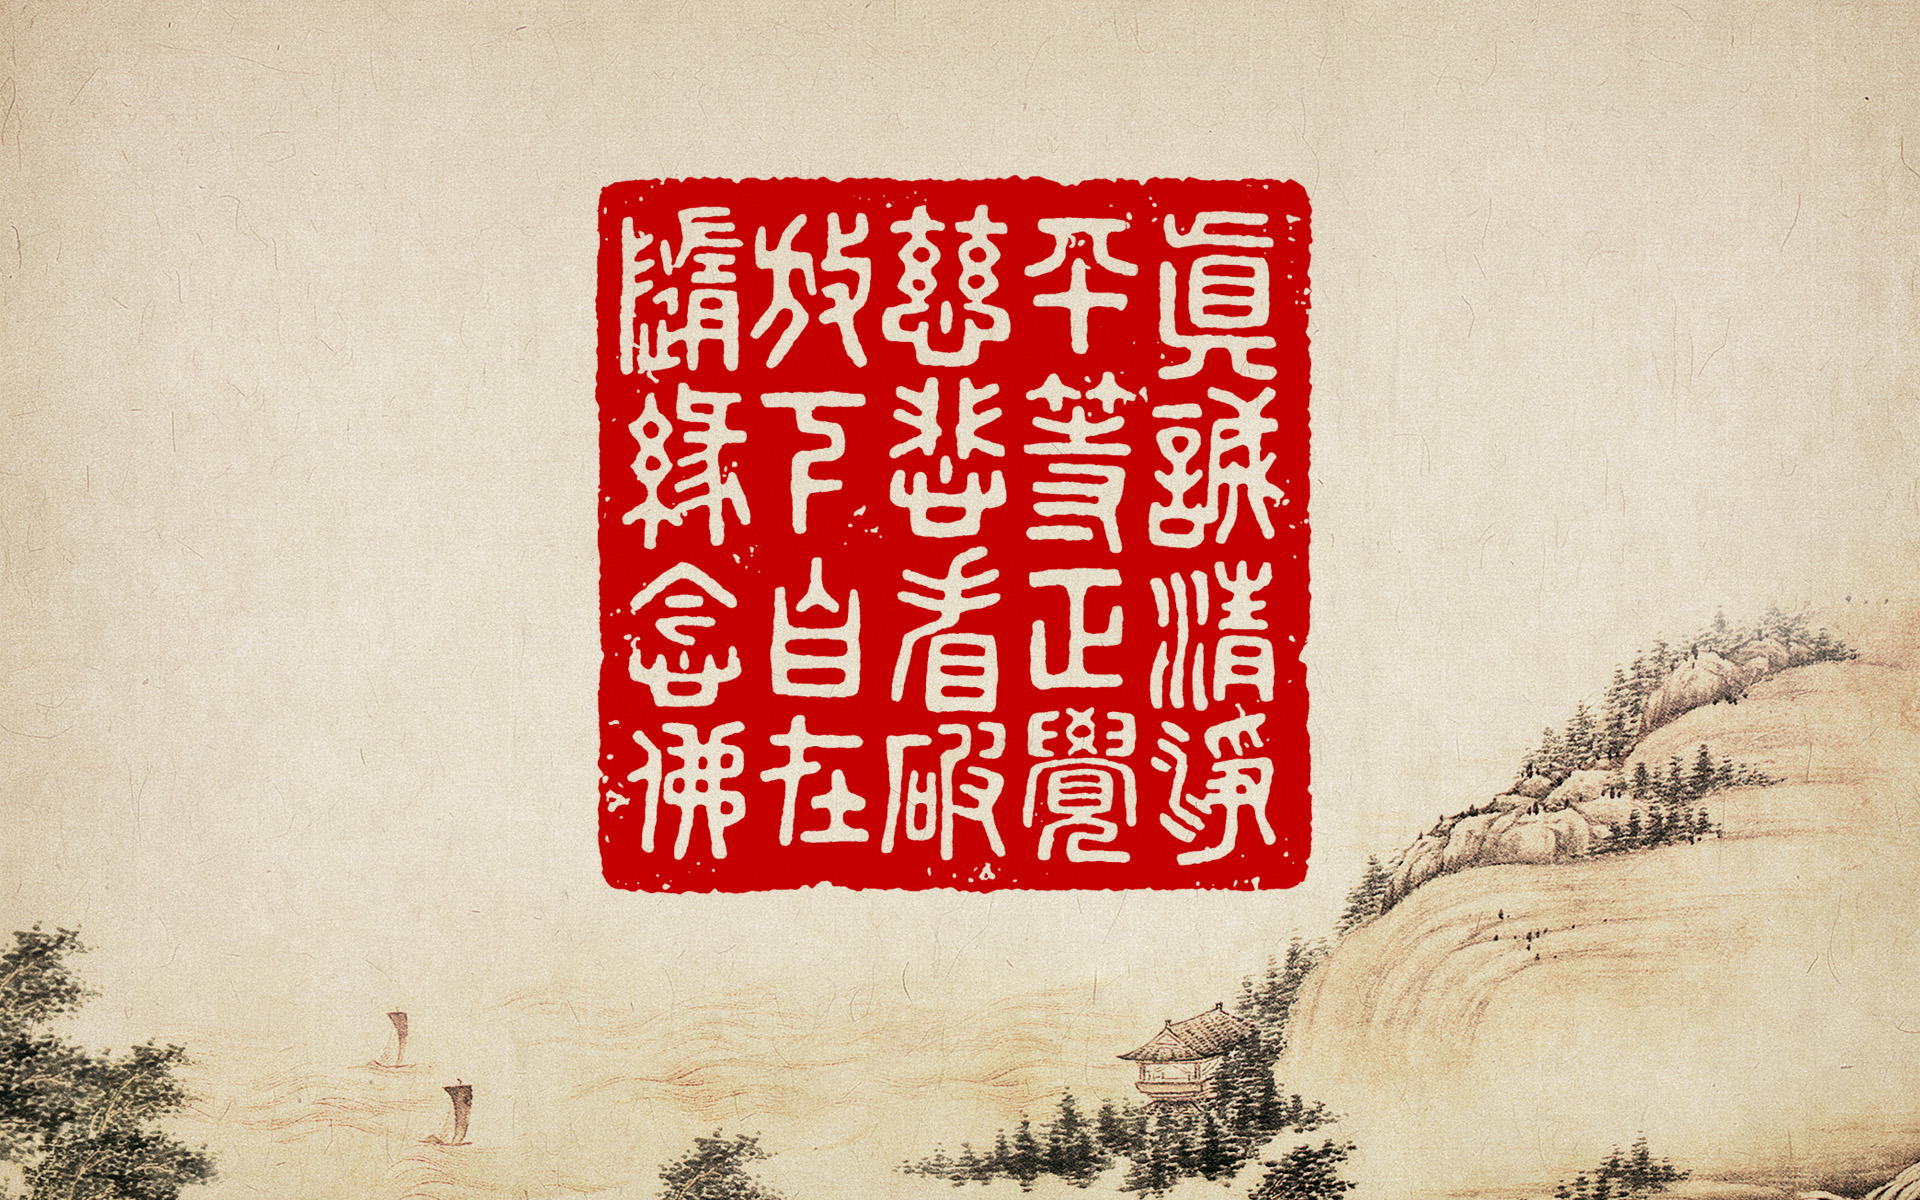 眞誠清淨
平等正覺
慈悲看破
放下自在
隨緣念佛